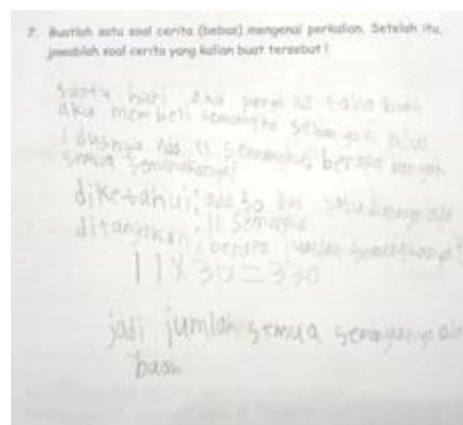 7. Buatlah satu soal cerita (bebas) mengenai perkalian. Setelah itu,
jawablah soal cerita yang kalian buat tersebut !
Suatu hari aku pergi ke toko buah
aku membeli semangka sebanyak
1 dusnya ada 11 semangka, berapa banyak
semua semangkanya?
diketahui: ada 30 dus satu dusnya ada
11 semangka
ditanyakan: berapa jumlah semangkanya?
11 X 30 = 330
jadi jumlah semua
buah